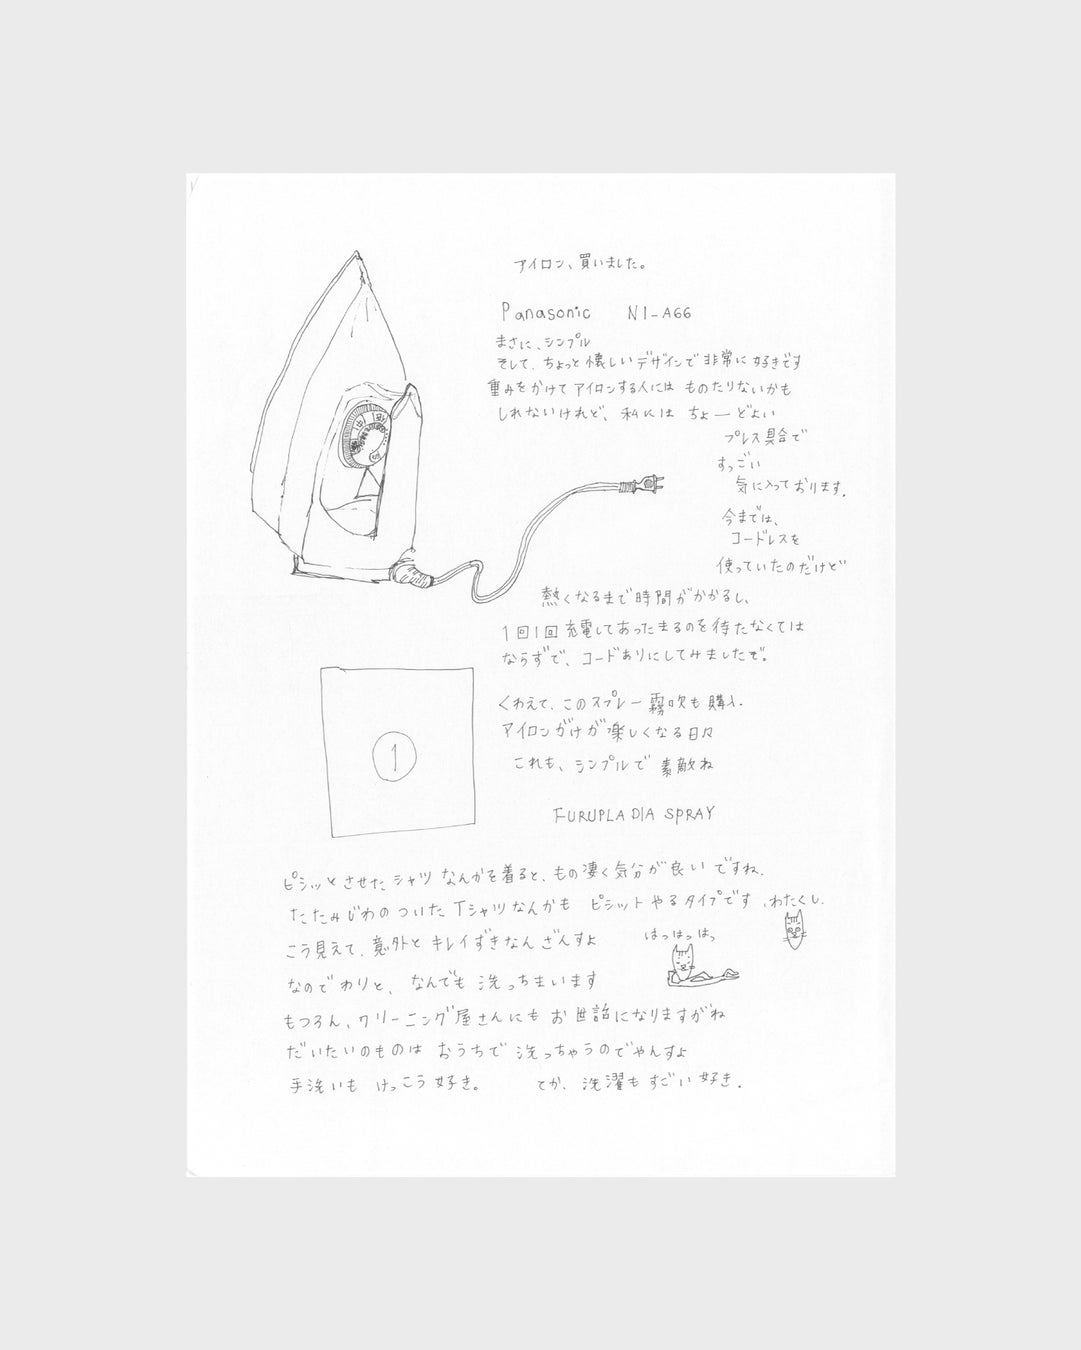 アイロン、買いました。
Panasonic NI-A66
まさに、シンプル
そして、ちょっと懐しいデザインで非常に好きです
重みをかけてアイロンする人には ものたりないかも
しれないけれど、私には ちょーどよい
プレス具合で
すっごい
気に入っております。
今までは、
コードレスを
使っていたのだけど
熱くなるまで時間がかかるし、
1回1回充電してあったまるのを待たなくては
ならずで、コードありにしてみましたぞ。
くわえて、このスプレー霧吹も購入。
アイロンがけが楽しくなる日々
これも、シンプルで素敵ね
FURUPLA DIA SPRAY
1
ピシッとさせたシャツなんかを着ると、もの凄く気分が良いですね。
たたみじわのついたTシャツなんかも ピシットやるタイプです、わたくし。
こう見えて、意外とキレイずきなんざんすよ
はっはっはっ
なのでわりと、なんでも洗っちまいます
もつろん、クリーニング屋さんにもお世話になりますがね
だいたいのものは おうちで洗っちゃうのでやんすよ
手洗いも けっこう好き。 てか、洗濯もすごい好き。